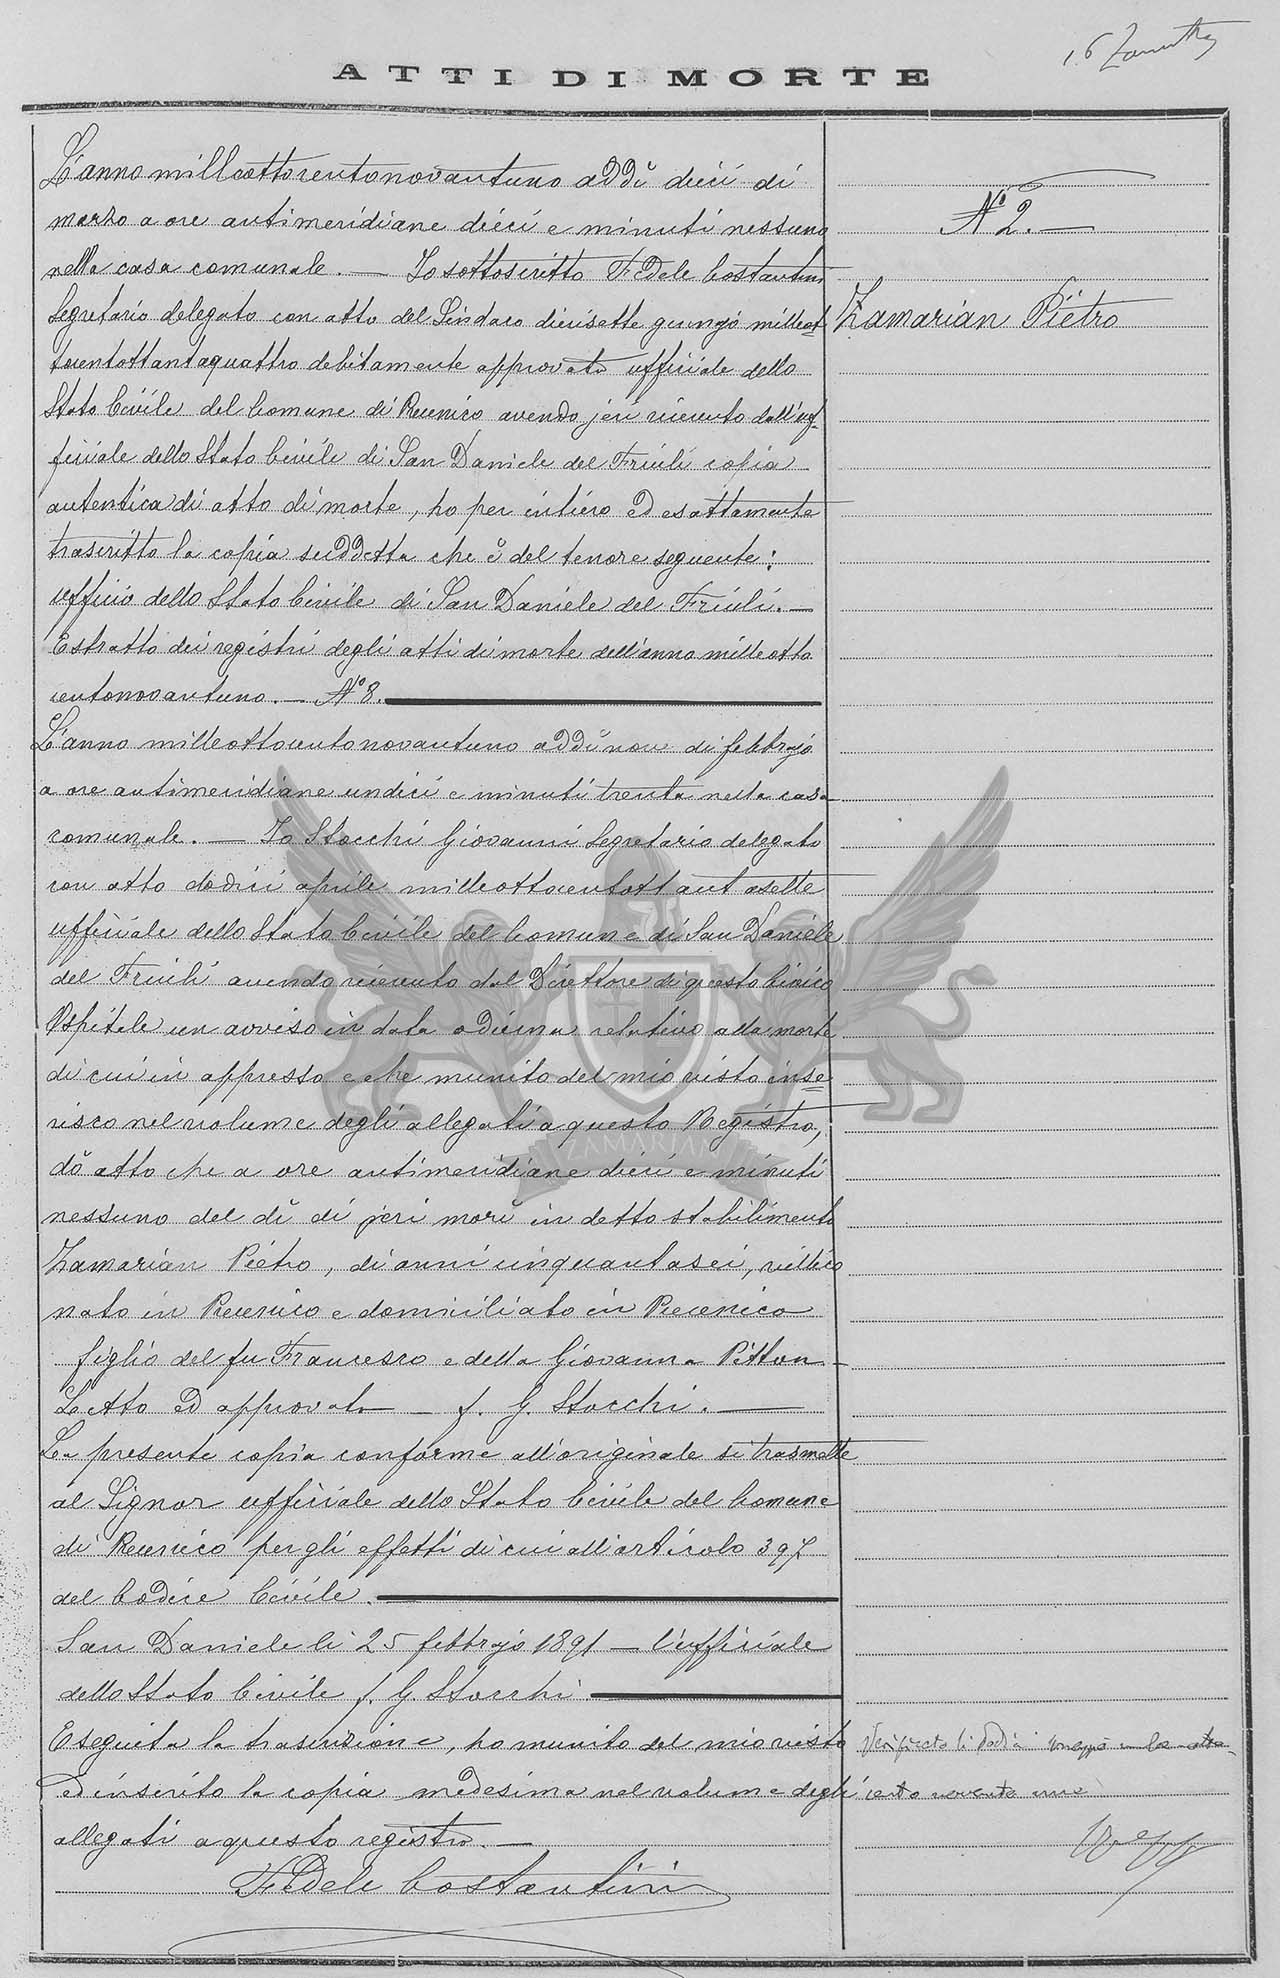 ATTI DI MORTE
L'anno milleottocentonovantuno addì dieci di
marzo a ore antimeridiane dieci e minuti nessuno
nella casa comunale. — Io sottoscritto Fedele Costantini
Segretario delegato con atto del Sindaco diecisette giugno milleot
tocentottantaquattro debitamente approvato uffiziale dello
Stato Civile del Comune di Precenico avendo jeri ricevuto dall'uf-
fiziale dello Stato Civile di San Daniele del Friuli copia
autentica di atto di morte, ho per intiero ed esattamente
trascritto la copia suddetta che è del tenore seguente:
Ufficio dello Stato Civile di San Daniele del Friuli. —
Estratto dei registri degli atti di morte dell'anno milleotto
centonovantuno. — N° 8.
L'anno milleottocentonovantuno addì nove di febbrajo
a ore antimeridiane undici e minuti trenta nella casa
comunale. — Io Stocchi Giovanni Segretario delegato
con atto dodici aprile milleottocentottantasette
uffiziale dello Stato Civile del Comune di San Daniele
del Friuli avendo ricevuto dal Direttore di questo Civico
Ospitale un avviso in data odierna relativo alla morte
di cui in appresso e che munito del mio visto inse
risco nel volume degli allegati a questo Registro,
dò atto che a ore antimeridiane dieci e minuti
nessuno del dì di jeri morì in detto stabilimento
Zamarian Pietro, di anni cinquantasei, villico
nato in Precenico e domiciliato in Precenico
figlio del fu Francesco e della Giovanna Pitton -
Letto ed approvato — f. G. Stocchi. —
La presente copia conforme all'originale si trasmette
al Signor uffiziale dello Stato Civile del Comune
di Precenico per gli effetti di cui all'articolo 397
del Codice Civile.
San Daniele li 25 febbrajo 1891 — l'uffiziale
dello Stato Civile f. G. Stocchi.
Eseguita la trascrizione, ho munito del mio visto
ed inserito la copia medesima nel volume degli
allegati a questo registro. —
Fedele Costantini
N° 2. —
Zamarian Pietro
cento novanta uno
ZAMARIAN